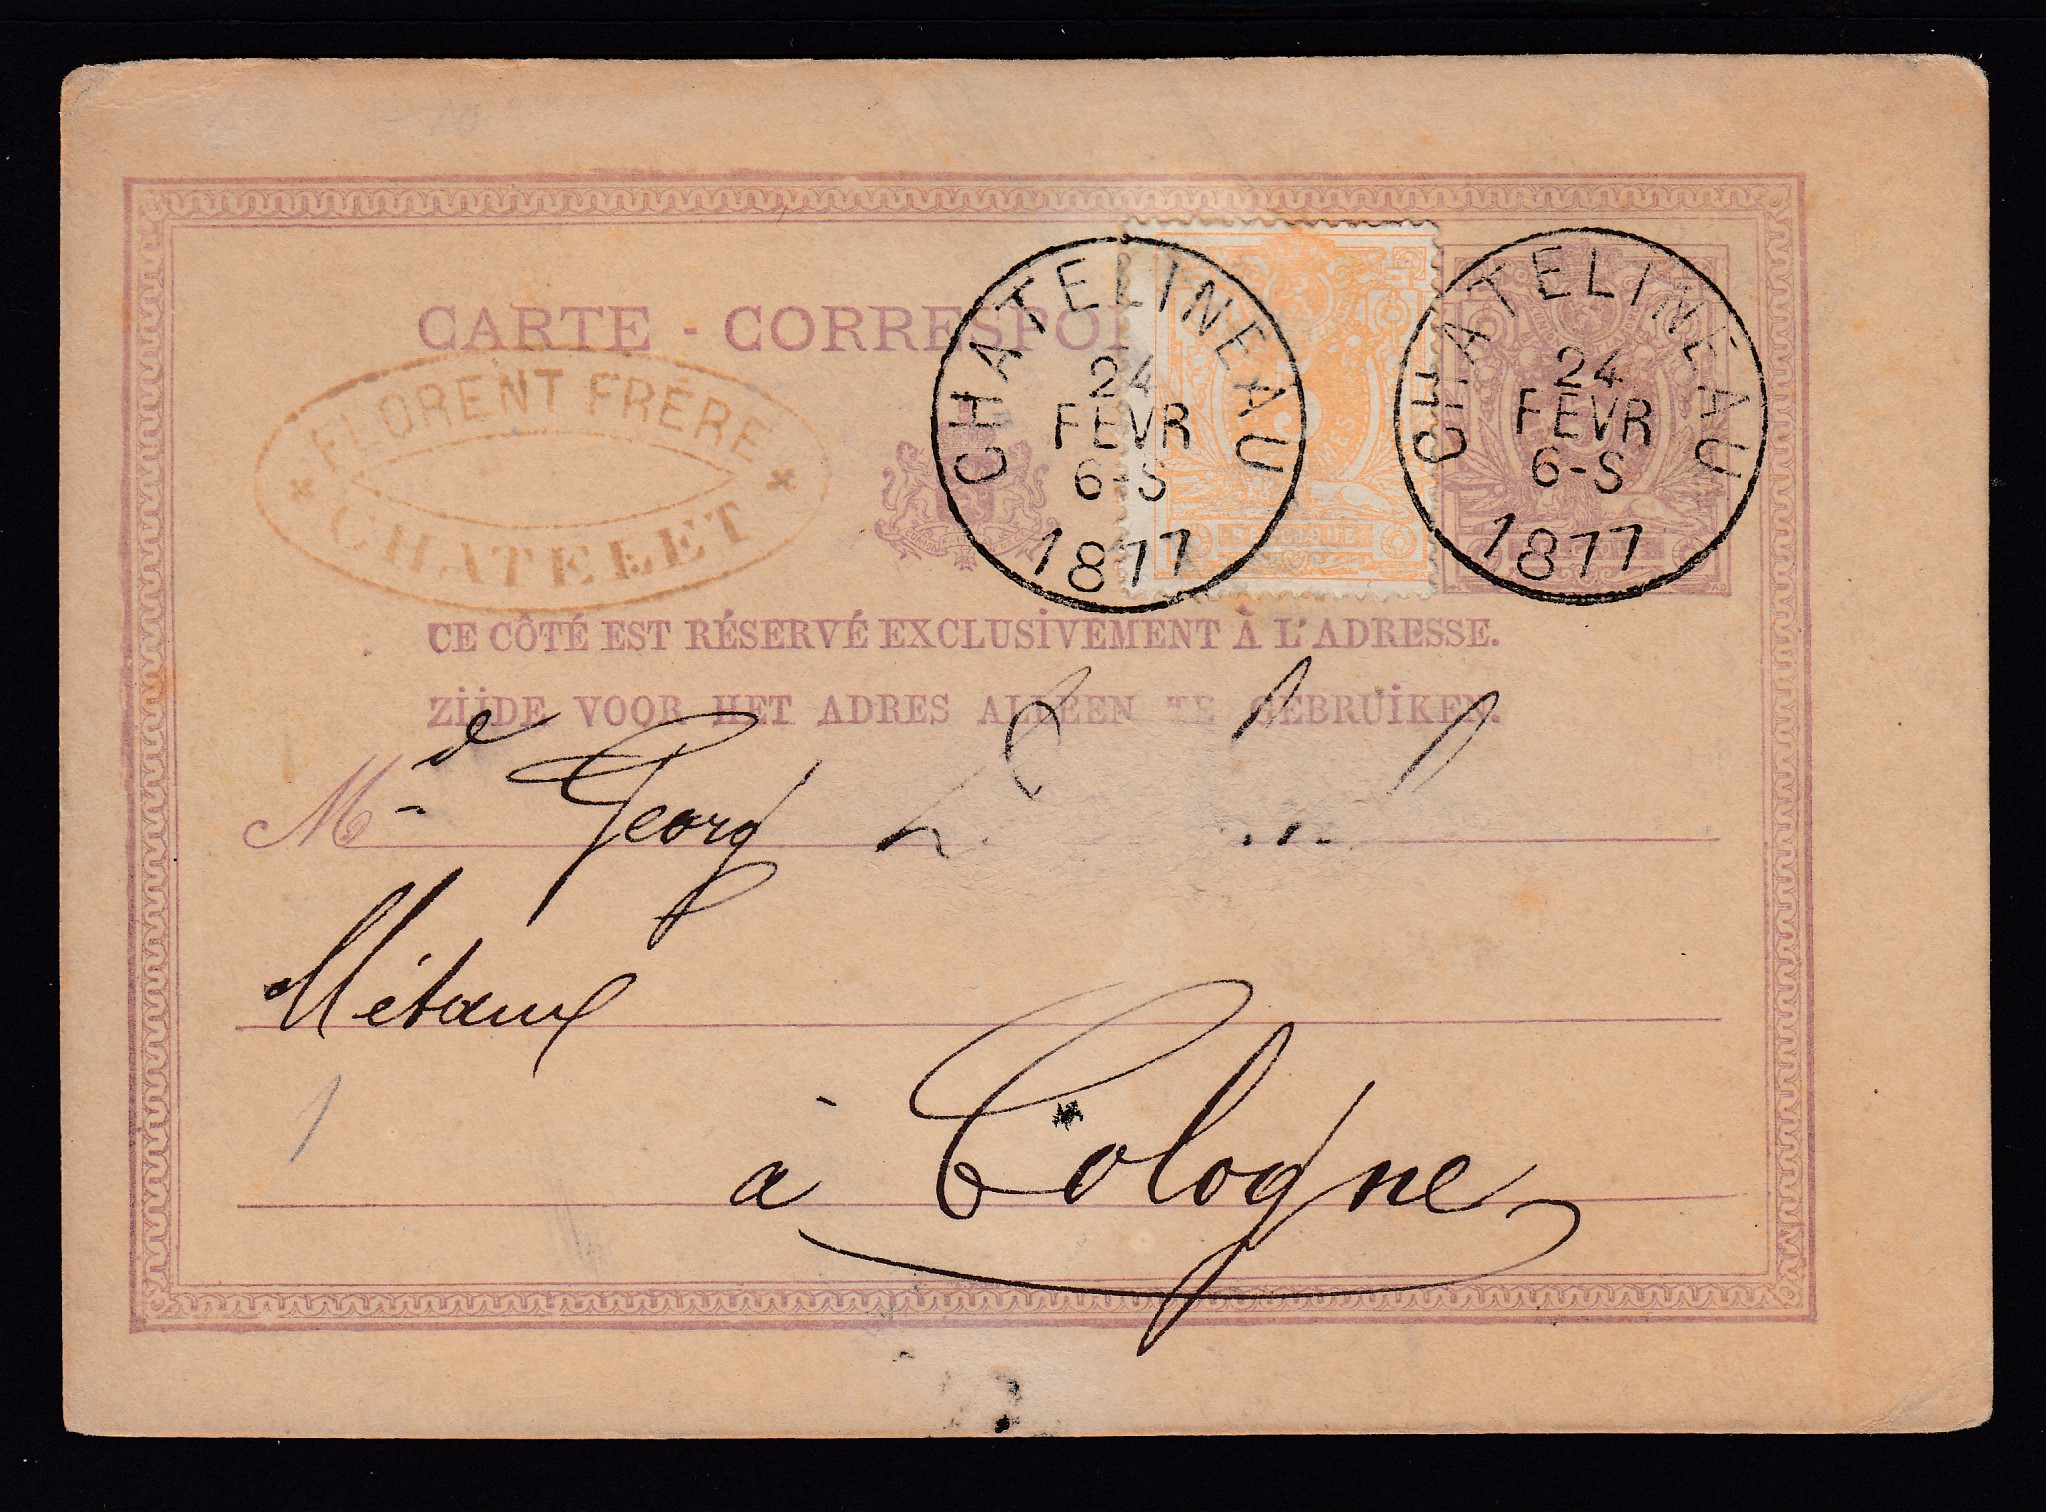 CARTE - CORRESPON
FLORENT FRÈRE
CHATELET
CHATELINEAU
24
FEVR
6-S
1877
CHATELINEAU
24
FEVR
6-S
1877
BELGIQUE
CE CÔTÉ EST RÉSERVÉ EXCLUSIVEMENT À L'ADRESSE.
ZIJDE VOOR HET ADRES ALLEEN TE GEBRUIKEN.
Md Georg
Métaux
à Cologne